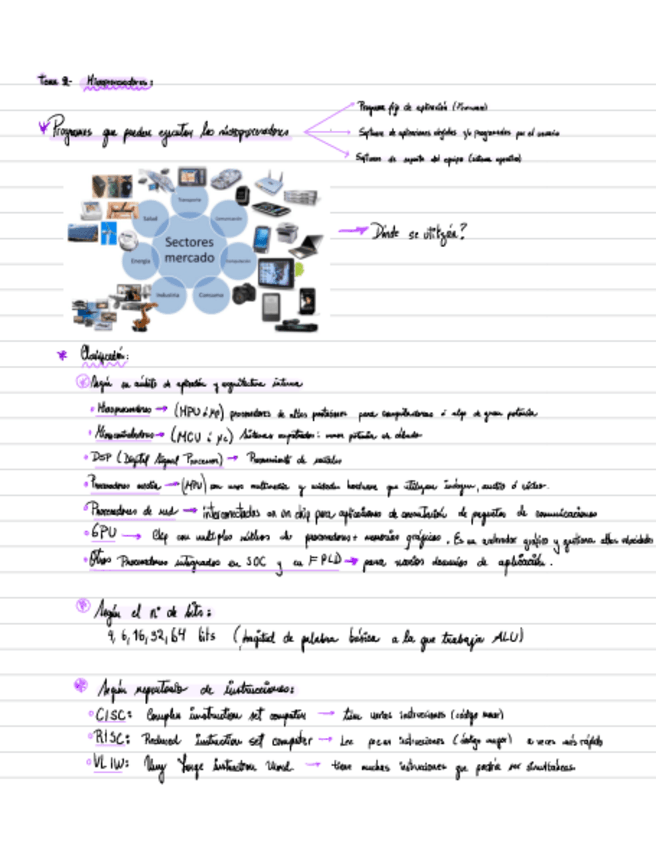 Tema 2- Microprocesadores:
Programas que pueden ejecutar los microprocesadores
Programa fijo de aplicación (Firmware)
Software de aplicaciones elegidas y/o programadas por el usuario
Software de soporte del equipo (sistema operativo)
Transporte
Salud
Comunicación
Sectores mercado
Energía
Computación
Industria
Consumo
Dónde se utilizan?
Clasificación:
Según su ámbito de aplicación y arquitectura interna
Microprocesadores → (MPU ó μP) procesadores de altas prestaciones para computadoras ó algo de gran potencia
Microcontroladores → (MCU ó μC) Sistemas empotrados: menor potencia de cálculo
DSP (Digital Signal Processor) → Procesamiento de señales
Procesadores media → (MPU) con usos multimedia y hardware que utilizan imagen, audio ó video.
Procesadores de red → interconectados en un chip para aplicaciones de conmutación de paquetes de comunicaciones
GPU → Chip con multiples núcleos de procesadores + memorias gráficas. Es un acelerador gráfico y gestiona altas velocidades
Otros Procesadores integrados en SOC y en FPLD → para varios de aplicación.
Según el nº de bits:
4, 6, 16, 32, 64 bits (longitud de palabra básica a la que trabaja ALU)
Según repertorio de instrucciones:
CISC: Complex instruction set computer → tiene varias instrucciones (código menor)
RISC: Reduced instruction set computer → Lee pocas instrucciones (código mayor) a veces más rápido
VLIW: Very Large instruction Word → tiene muchas instrucciones que podría ser simultáneas